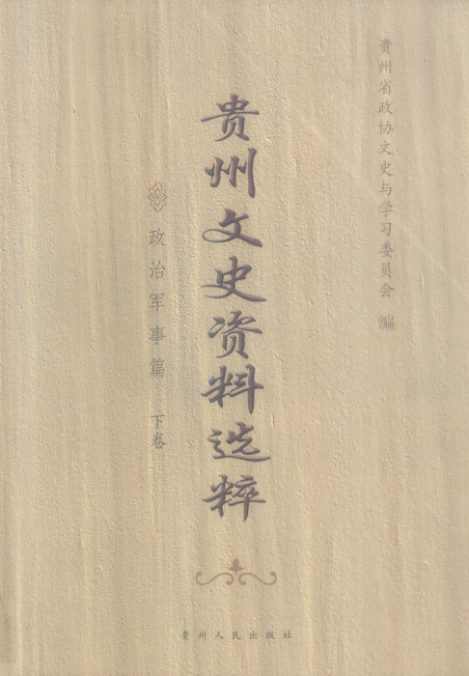 贵州省政协文史与学习委员会 编
贵州文史资料选粹
政治军事篇 下卷
贵州人民出版社